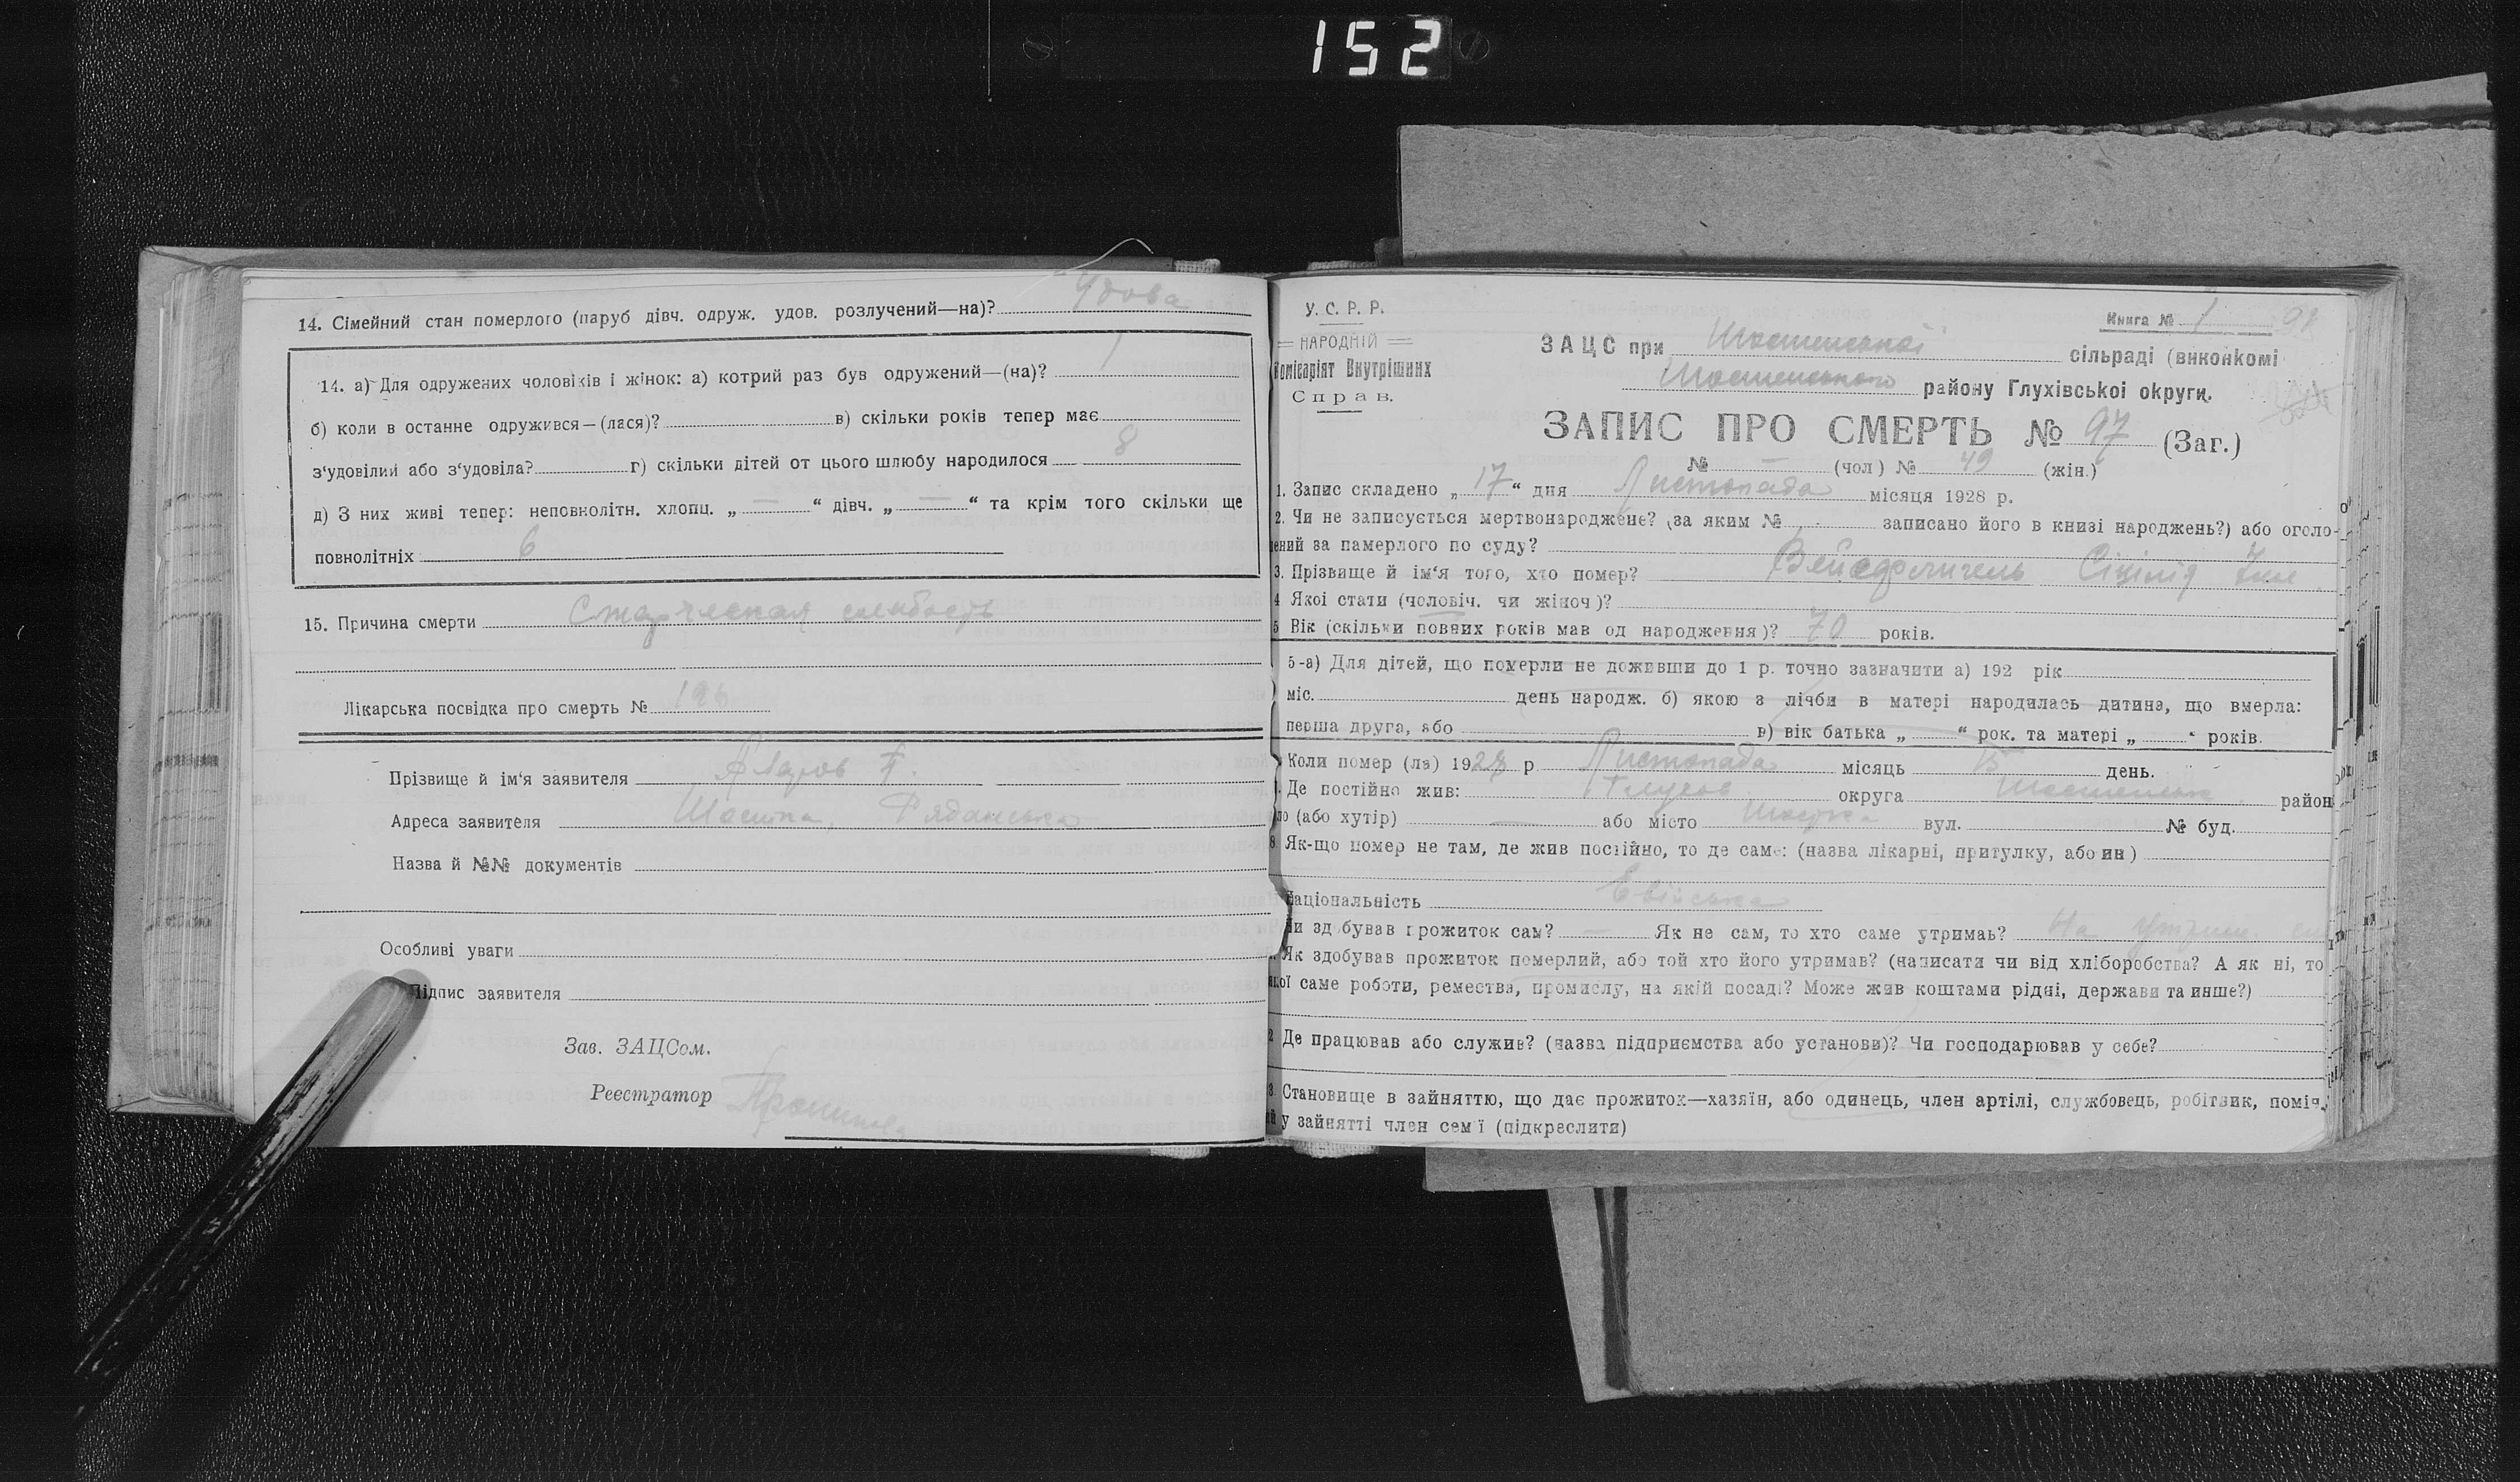 152
14. Сімейний стан померлого (паруб дівч. одруж. удов. розлучений—на)? Удова
14. а) Для одружених чоловіків і жінок: а) котрий раз був одружений—(на)? 1
б) коли в останнє одружився—(лася)? в) скільки років тепер має
з'удовілий або з'удовіла? г) скільки дітей от цього шлюбу народилося 8
д) З них живі тепер: неповнолітн. хлопц. „ — “ дівч. „ — “ та крім того скільки ще
повнолітніх 6
15. Причина смерти Старческая слабость
Лікарська посвідка про смерть № 126
Прізвище й ім'я заявителя
Адреса заявителя Шостка,
Назва й №№ документів
Особливі уваги
Підпис заявителя
Зав. ЗАЦСом.
Реєстратор
У. С. Р. Р.
НАРОДНІЙ
Комісаріят Внутрішних
Справ.
Книга № 1
ЗАЦС при Шостенськой сільраді (виконкомі
Шостенського району Глухівської округи.
ЗАПИС ПРО СМЕРТЬ № 97 (Заг.)
№ — (чол) № 49 (жін.)
1. Запис складено „ 17 “ дня Листопада місяця 1928 р.
2. Чи не записується мертвонароджене? (за яким № записано його в книзі народжень?) або оголо-
шений за памерлого по суду?
3. Прізвище й ім'я того, хто помер? Сіцілія
4 Якої стати (чоловіч. чи жіноч)?
5 Вік (скільки повних років мав од народження)? 70 років.
5-а) Для дітей, що померли не доживши до 1 р. точно зазначити а) 192 рік
міс. день народж. б) якою з лічби в матері народилась дитина, що вмерла:
перша друга, або в) вік батька „ “ рок. та матері „ “ років.
Коли помер (ла) 1928 р Листопада місяць 15 день.
Де постійно жив: Глухов округа Шостенськ район
ло (або хутір) — або місто Шостка вул. № буд.
8. Як-що помер не там, де жив постійно, то де саме: (назва лікарні, притулку, або ин)
Національність Евійська
Чи здобував прожиток сам? — Як не сам, то хто саме утримав? На утрим.
Як здобував прожиток померлий, або той хто його утримав? (написати чи від хліборобства? А як ні, то
якої саме роботи, ремества, промислу, на якій посаді? Може жив коштами рідні, держави та инше?)
2 Де працював або служив? (назва підприємства або установи)? Чи господарював у себе?
3. Становище в зайняттю, що дає прожиток—хазяїн, або одинець, член артілі, службовець, робітник, поміч.
у зайнятті член сем'ї (підкреслити)